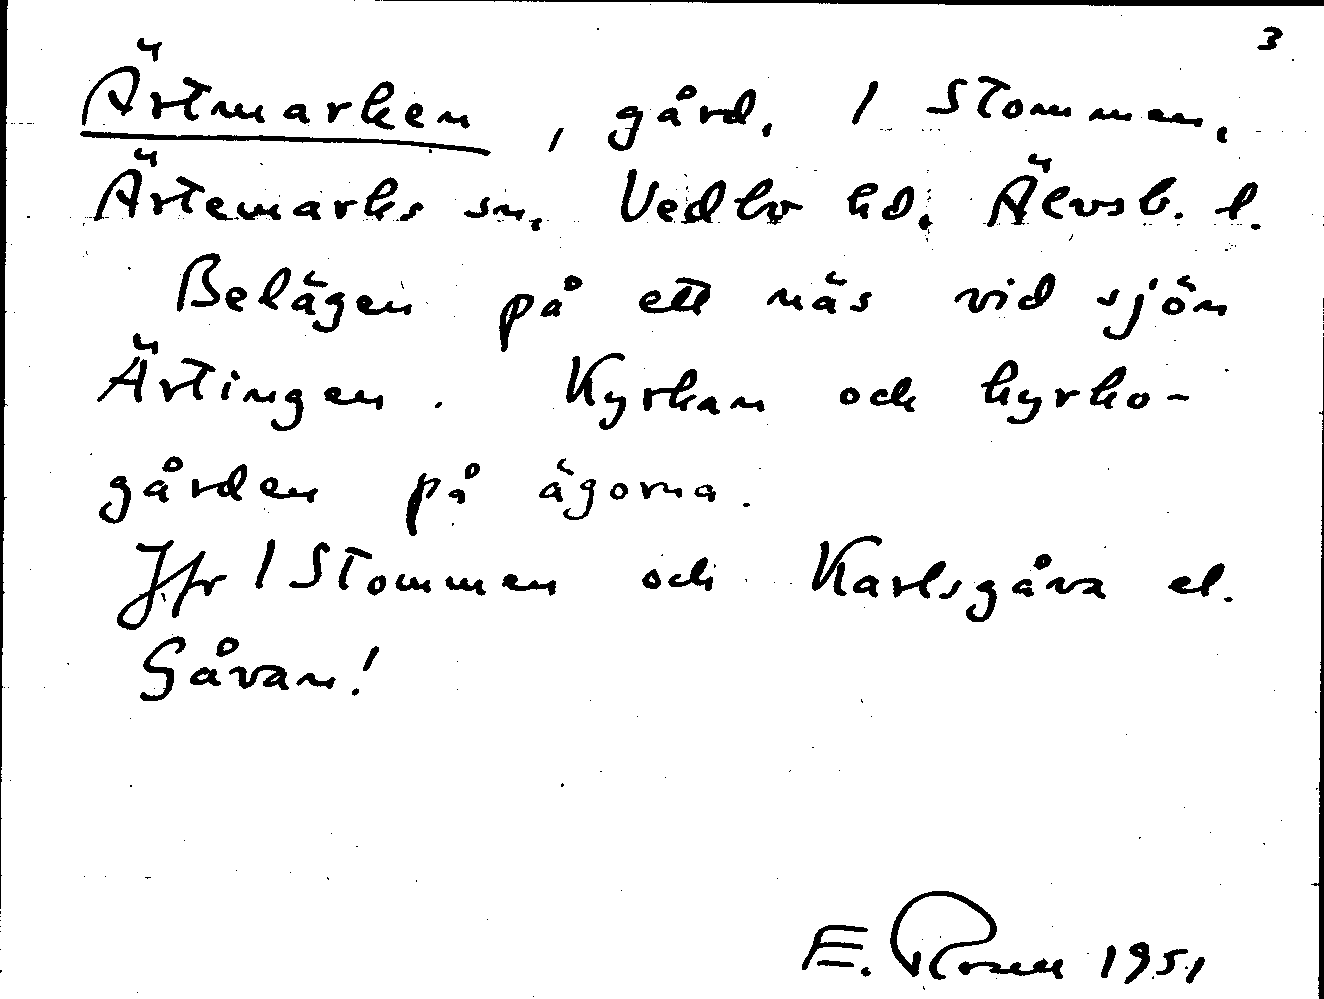 3
Ärtmarken, gård, 1 Stommen,
Ärtemarks sn, Vedbo hd. Älvsb. l.
Belägen på ett näs vid sjön
Ärtingen. Kyrkan och kyrko-
gården på ägorna.
Jfr 1 Stommen och Karlsgåva el.
Gåvan!
E. Rosell 1951